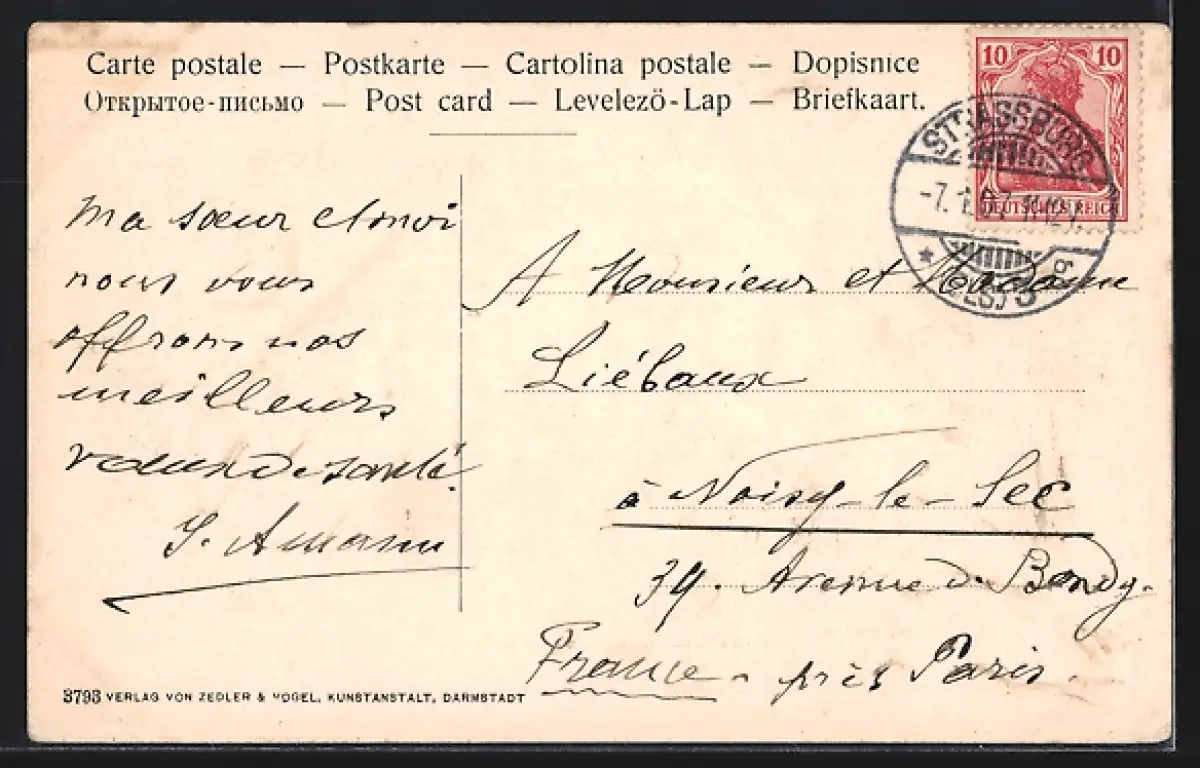 Carte postale — Postkarte — Cartolina postale — Dopisnice
Открытое-письмо — Post card — Levelezö-Lap — Briefkaart.
10 10
DEUTSCHES REICH
STRASSBURG
(ELS.) 3
ma sœur et moi
nous vous
offrons nos
meilleurs
vœux de santé.
J. Amann
A Monsieur et Madame
Liébaux
à Noisy-le-Sec
39. Avenue de Bondy.
France - près Paris.
3793 VERLAG VON ZEDLER & VOGEL, KUNSTANSTALT, DARMSTADT